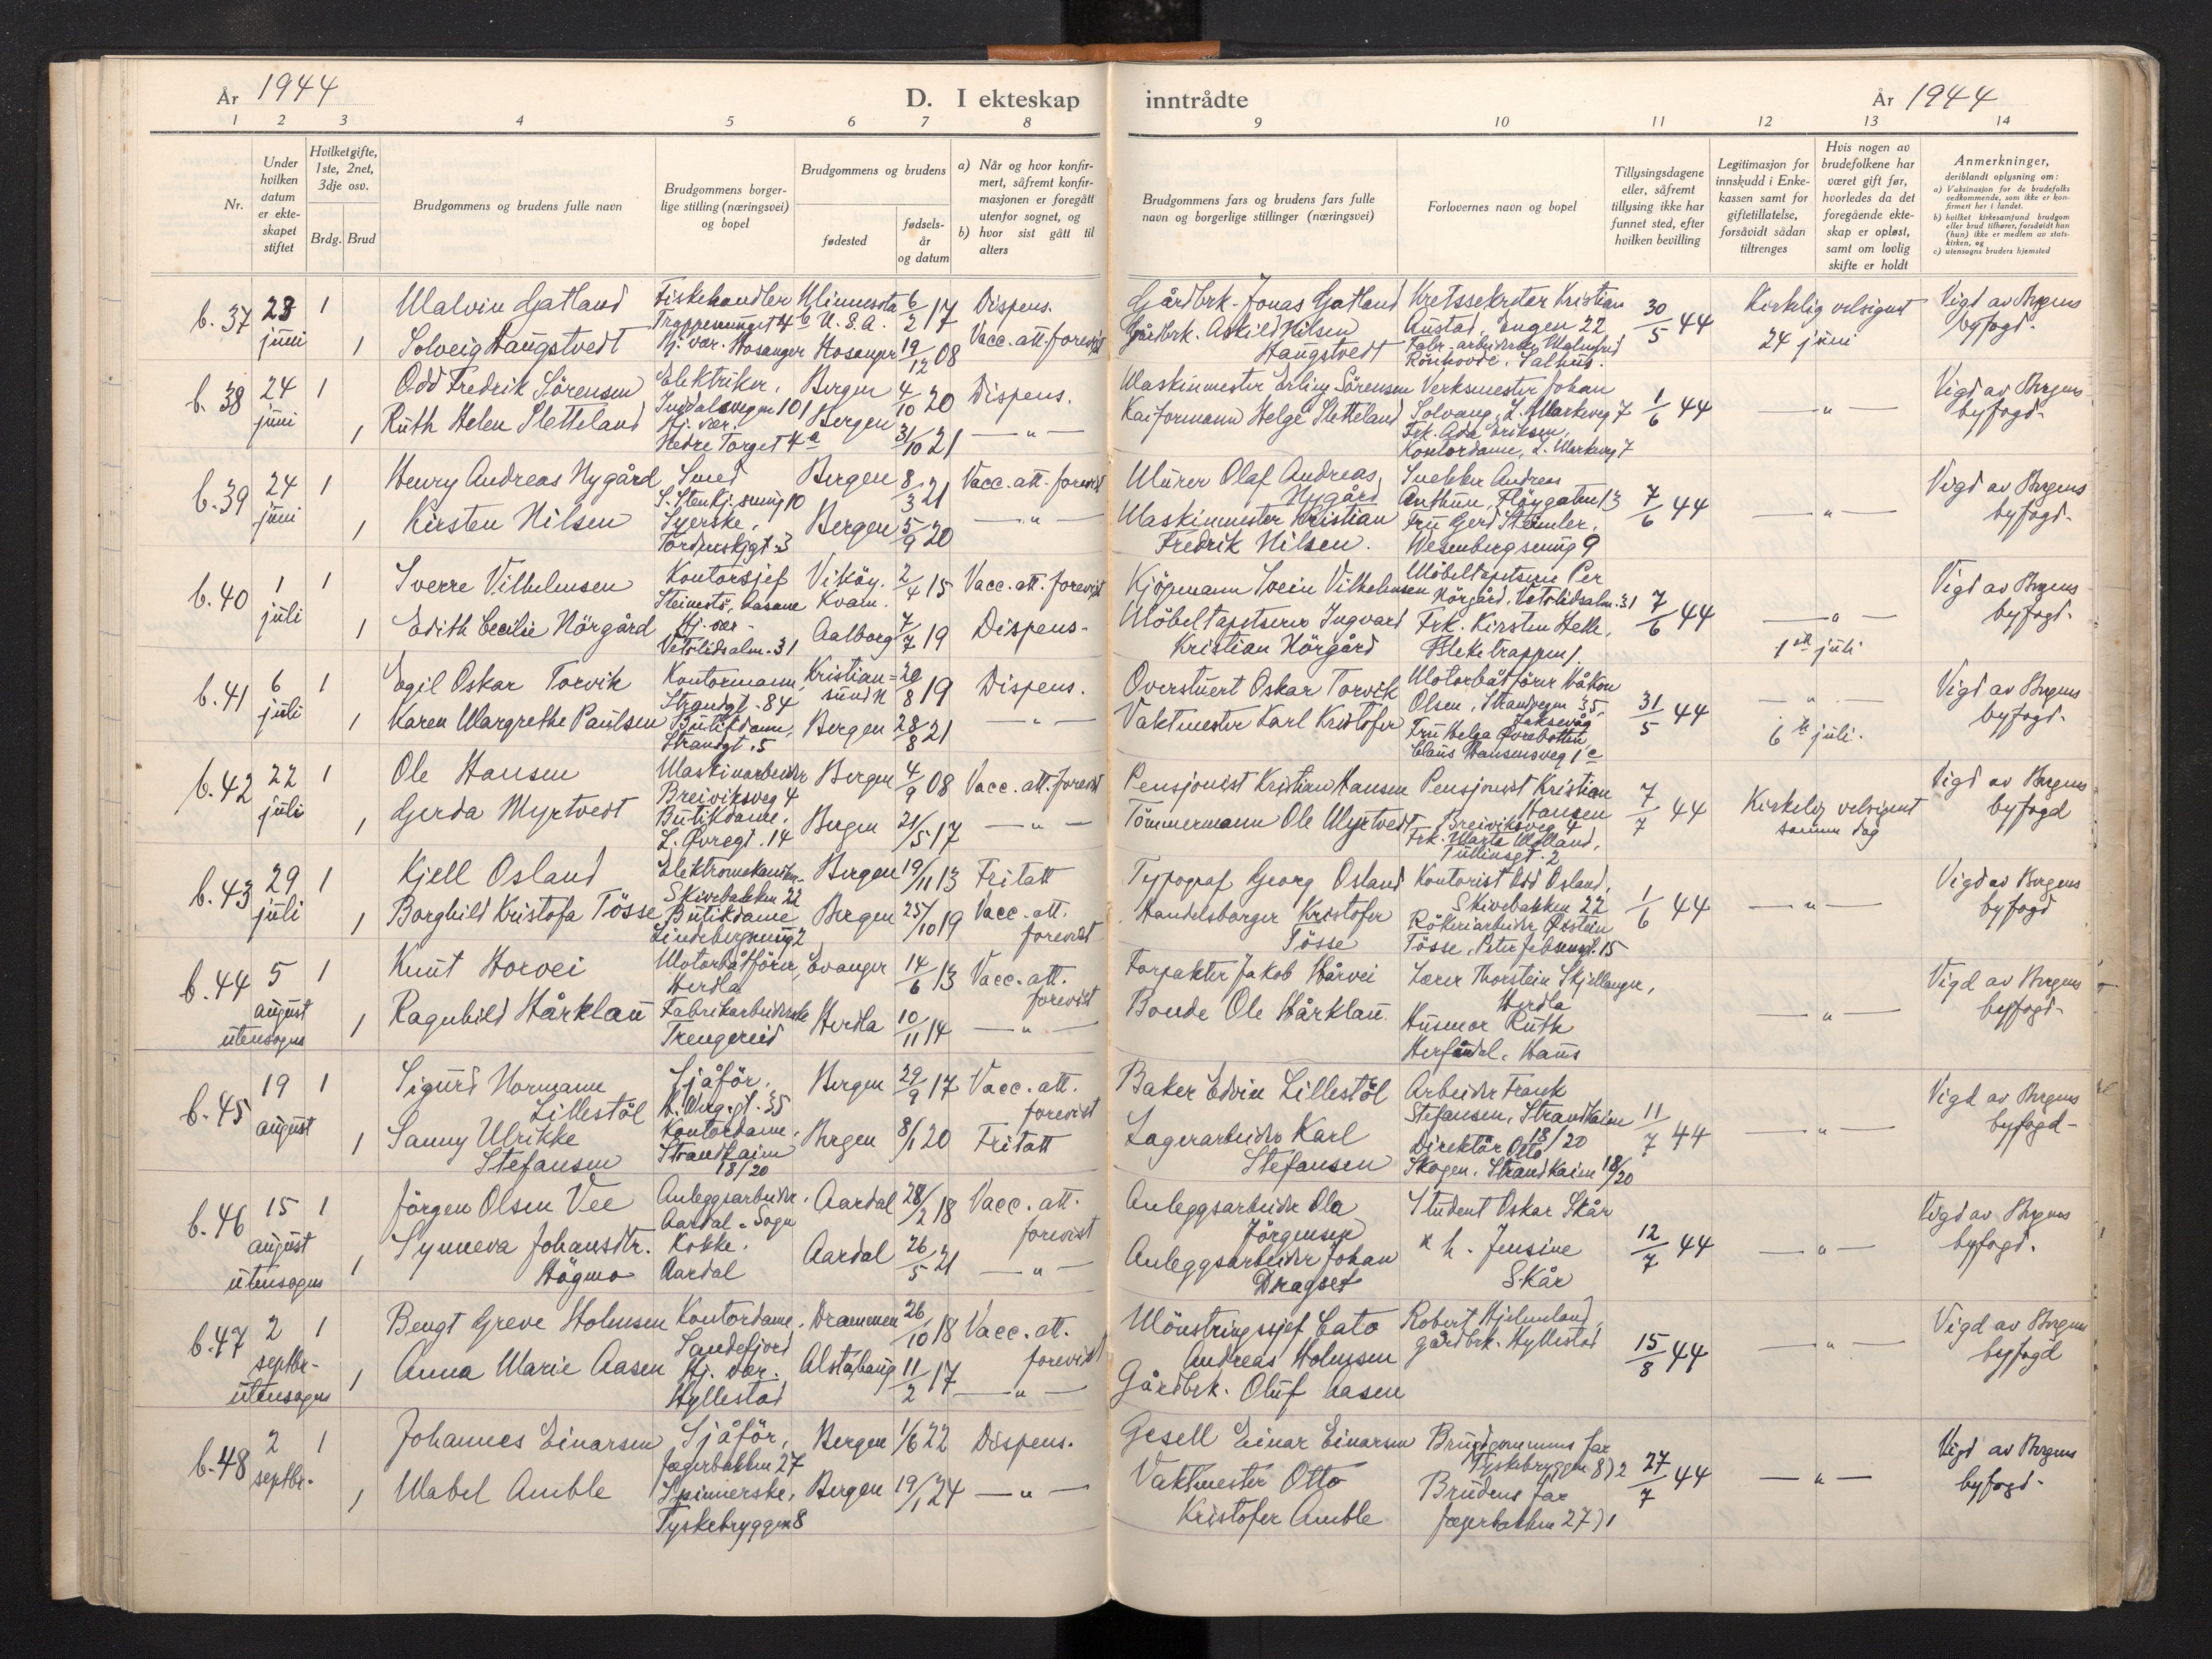 År 1944
D. I ekteskap inntrådte
År 1944
1 2 3 4 5 6 7 8 9 10 11 12 13 14
Nr.
Under hvilken datum er ekteskapet stiftet
Hvilket gifte, 1ste, 2net, 3dje osv.
Brdg. Brud
Brudgommens og brudens fulle navn
Brudgommens borgerlige stilling (næringsvei) og bopel
Brudgommens og brudens
fødested
fødselsår og datum
a) Når og hvor konfirmert, såfremt konfirmasjonen er foregått utenfor sognet, og
b) hvor sist gått til alters
Brudgommens fars og brudens fars fulle navn og borgerlige stillinger (næringsvei)
Forlovernes navn og bopel
Tillysingsdagene eller, såfremt tillysing ikke har funnet sted, efter hvilken bevilling
Legitimasjon for innskudd i Enkekassen samt for giftetillatelse, forsåvidt sådan tiltrenges
Hvis nogen av brudefolkene har været gift før, hvorledes da det foregående ekteskap er opløst, samt om lovlig skifte er holdt
Anmerkninger,
deriblandt oplysning om:
a) Vaksinasjon for de brudefolks vedkommende, som ikke er konfirmert her i landet.
b) hvilket kirkesamfund brudgom eller brud tilhører, forsåvidt han (hun) ikke er medlem av statskirken, og
c) utensogns bruders hjemsted
b.37 23 juni 1
Malvin Gatland
Fiskehandler
Trappesmuget 4 b
Minnesota U.S.A.
6/2 17
Dispens.
Gårdbrk. Jonas Gatland
Kretssekretær Kristian
Austad, Engen 22
30/5 44
Kirkelig velsignet
24 juni
Vigd av Bergens
byfogd.
1
Solveig Haugstvedt
Hj. vær. Hosanger
Hosanger
19/12 08
Vacc. att. forevist
Gårdbrk. Askild Nilsen
Haugstvedt
Fabr. arbeiderske Malmfrid
Rönhovde, Salhus.
b.38 24 juni 1
Odd Fredrik Sörensen
Elektriker,
Inndalsvegen 101
Bergen
4/10 20
Dispens.
Maskinmester Erling Sörensen
Verksmester Johan
Solvang, L. Markeveg 7
1/6 44
— " —
Vigd av Bergens
byfogd.
1
Ruth Helen Sletteland
Hj. vær.
Nedre Torget 4 a
Bergen
31/10 21
— " —
Kaiformann Helge Sletteland
Frk. Ada Eriksen,
Kontordame, L. Markeveg 7
b.39 24 juni 1
Henry Andreas Nygård
Smed
Bergen
8/3 21
Vacc. att. forevist
Murer Olaf Andreas
Nygård
Snekker Andreas
7/6 44
— " —
Vigd av Bergens
byfogd.
1
Kirsten Nilsen
Syerske,
Tordenskjgt. 3
Bergen
5/9 20
— " —
Maskinmester Kristian
Fredrik Nilsen.
Wesenbergsmug 9
b.40 1 juli 1
Sverre Vilhelmsen
Kontorsjef
Steinestö, Aasane
Viköy.
Kvam.
2/4 15
Vacc. att. forevist
Kjöpmann Svein Vilhelmsen
Möbeltapetserer Per
Nörgård, Vetrlidsalm. 31
7/6 44
— " —
1 ste juli
Vigd av Bergens
byfogd.
1
Edith Cecilie Nörgård
Hj. vær.
Vetrlidsalm. 31
Aalborg
7/7 19
Dispens.
Möbeltapetserer Ingvard
Kristian Nörgård
Frk. Kirsten Helle,
Bleketrappen 1.
b.41 6 juli 1
Egil Oskar Torvik
Kontormann,
Strandgt. 84
Kristian=
sund N
20/8 19
Dispens.
Overstuert Oskar Torvik
Motorbåtförer Håkon
Olsen, Strandvegen 35,
Laksevåg
31/5 44
— " —
6 te juli.
Vigd av Bergens
byfogd.
1
Karen Margrethe Paulsen
Butikdame,
Strandgt. 5
Bergen
28/8 21
— " —
Vaktmester Karl Kristofer
Fru Helga Övrebotten,
Claus Hansensveg 1 c
b.42 22 juli 1
Ole Hansen
Maskinarbeider
Breiviksveg 4
Bergen
4/9 08
Vacc. att. forevist
Pensjonist Kristian Hansen
Pensjonist Kristian
Hansen
Breiviksveg 4
7/7 44
Kirkelig velsignet
samme dag
Vigd av Bergens
byfogd
1
Gerda Myrtvedt
Butikdame.
L. Øvregt. 14
Bergen
21/5 17
— " —
Tömmermann Ole Myrtvedt
Frk. Marta
Tullinsgt. 2
b.43 29 juli 1
Kjell Osland
Elektromekaniker
Skivebakken 22
Bergen
19/11 13
Fritatt
Typograf Georg Osland
Kontorist Odd Osland,
Skivebakken 22
1/6 44
— " —
Vigd av Bergens
byfogd
1
Borghild Kristofa Tösse
Butikdame
Lindebergsmug 2
Bergen
25/10 19
Vacc. att.
forevist
Handelsborger Kristofer
Tösse
Rökeriarbeider Øistein
Tösse, Peter Jebsensgt. 15
b.44 5 august 1
utensogns
Knut Horvei
Motorbåtförer,
Herdla
Evanger
14/6 13
Vacc. att.
forevist
Forpakter Jakob Hårvei
Lærer Thorstein Skjellanger,
Herdla
— " —
Vigd av Bergens
byfogd.
1
Ragnhild Hårklau
Fabrikarbeiderske
Trengereid
Herdla
10/11 14
— " —
Bonde Ole Hårklau.
Husmor Ruth
Herfindal, Haus
b.45 19 august 1
Sigurd Normann
Lilletstöl
Sjåför.
Bergen
29/9 17
Vacc. att.
forevist
Baker Edvin Lillestöl
Arbeider Frank
Stefansen, Strandkaien
18/20
11/7 44
— " —
Vigd av Bergens
byfogd-
1
Sanny Ulrikke
Stefansen
Kontordame,
Strandkaien
18/20
Bergen
8/1 20
Fritatt
Lagerarbeider Karl
Stefansen
Direktör Otto
Skogen, Strandkaien 18/20
b.46 15 august 1
utensogns
Jörgen Olsen Vee
Anleggsarbeider,
Aardal, Sogn
Aardal
28/2 18
Vacc. att.
forevist
Anleggsarbeider Ola
Jörgensen
Student Oskar Skår
12/7 44
— " —
Vigd av Bergens
byfogd.
1
Synneva Johansdtr.
Högmo
Kokke.
Aardal
Aardal
26/5 21
— " —
Anleggsarbeider Johan
Dragset
Jensine
Skår
b.47 2 septbr. 1
utensogns
Bengt Greve Holmsen
Kontordame.
Sandefjord
Drammen
26/10 18
Vacc. att.
forevist
Mönstringssjef Cato
Andreas Holmsen
Robert Hjelmeland,
gårdbrk. Hyllestad
15/8 44
— " —
Vigd av Bergens
byfogd
1
Anna Marie Aasen
Hj. vær.
Hyllestad
Alstahaug
11/2 17
— " —
Gårdbrk. Oluf Aasen
b.48 2 septbr. 1
Johannes Einarsen
Sjåför,
Jægerbakken 27
Bergen
1/6 22
Dispens.
Gesell Einar Einarsen
Brudgommens far
Tyskebryggen 8) 2
27/7 44
— " —
Vigd av Bergens
byfogd.
1
Mabel Amble
Spinnerske,
Tyskebryggen 8
Bergen
19/1 24
— " —
Vaktmester Otto
Kristofer Amble
Brudens far
Jægerbakken 27) 1